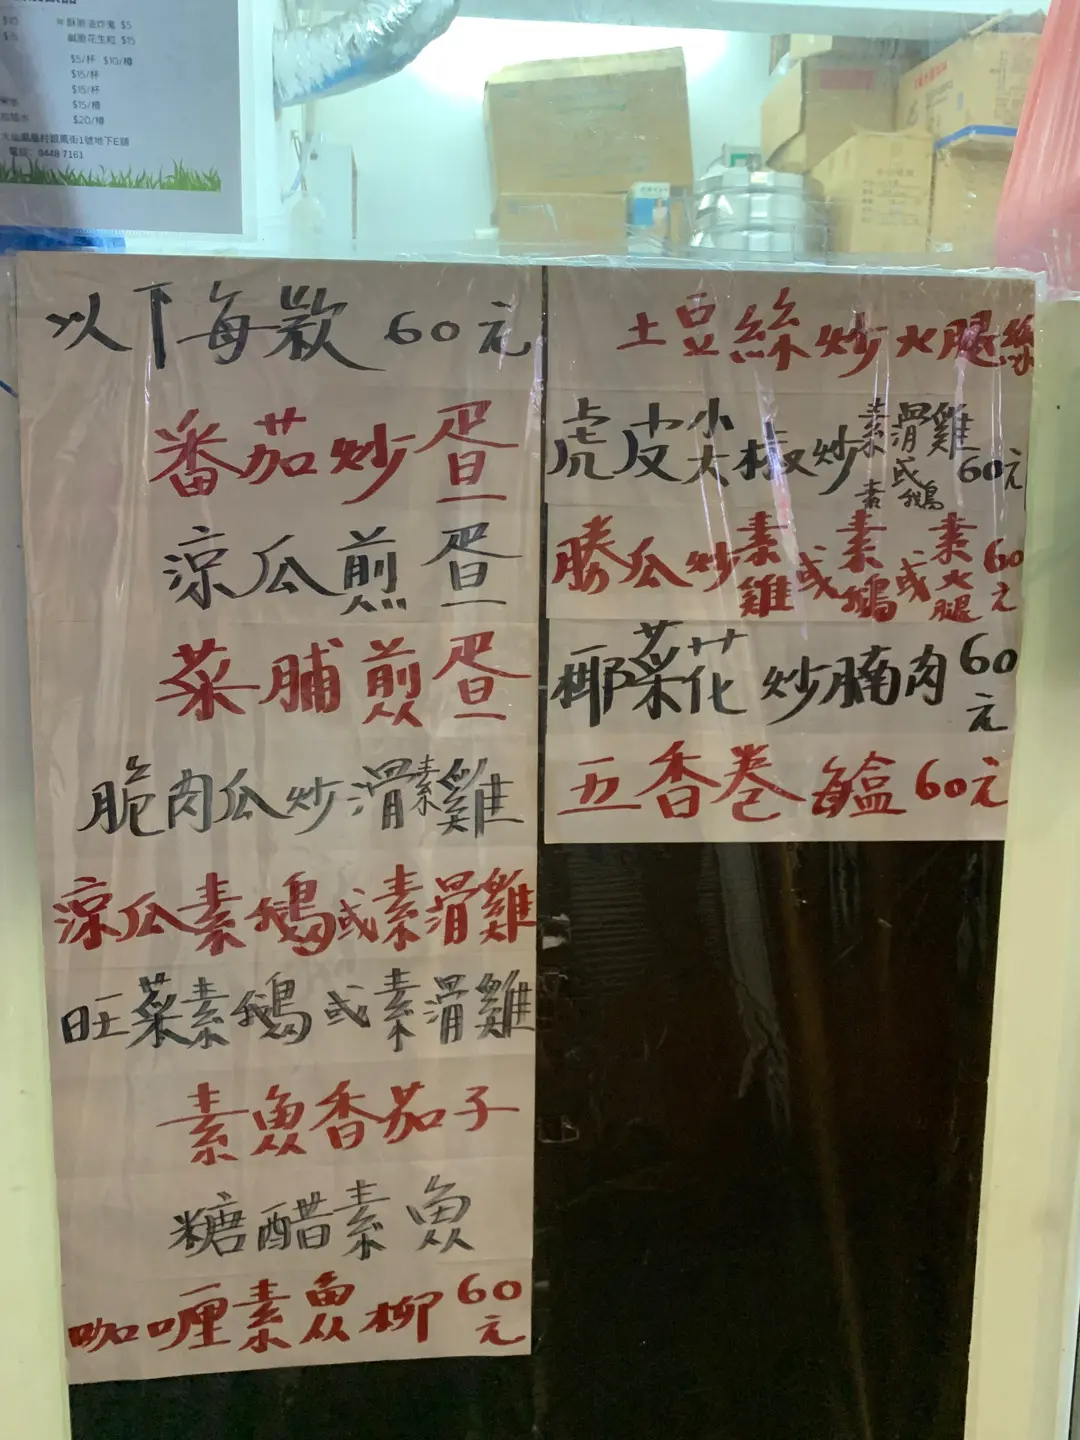 酥脆油炸鬼 $5
鹹脆花生粒 $15
$5/杯 $10/樽
$15/杯
$15/杯
$15/樽
$20/樽
鳳街1號地下E舖
電話: 9448 7161
以下每款 60元
番茄炒蛋
涼瓜煎蛋
菜脯煎蛋
脆肉瓜炒滑素雞
涼瓜素鵝或素滑雞
旺菜素鵝或素滑雞
素魚香茄子
糖醋素魚
咖喱素魚柳 60元
土豆絲炒火腿絲
虎皮尖椒炒素滑雞或素鵝 60元
勝瓜炒素雞或素鵝或素火腿 60元
椰菜花炒腩肉 60元
五香卷 每盒 60元